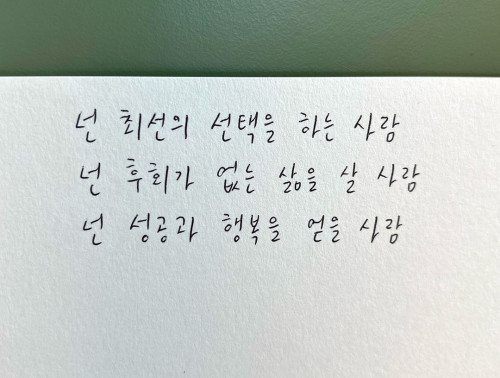 넌 최선의 선택을 하는 사람
넌 후회가 없는 삶을 살 사람
넌 성공과 행복을 얻을 사람